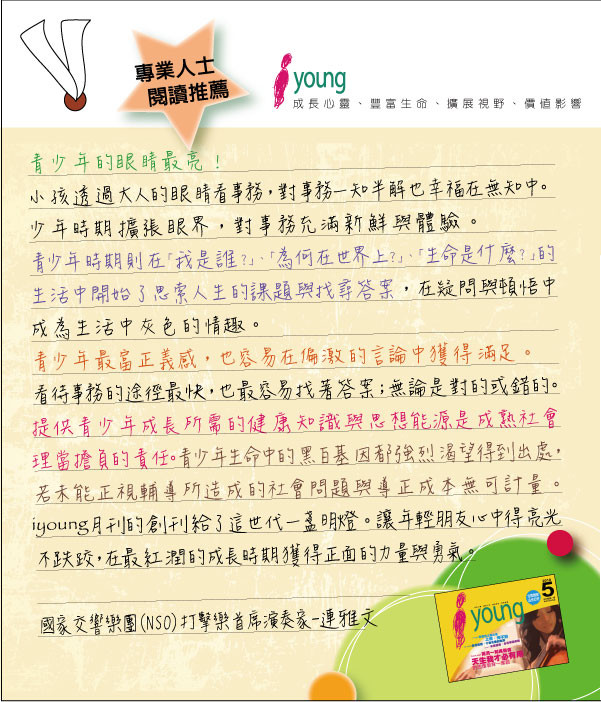 專業人士
閱讀推薦
iyoung
成長心靈、豐富生命、擴展視野、價值影響
青少年的眼睛最亮！
小孩透過大人的眼睛看事務，對事務一知半解也幸福在無知中。
少年時期擴張眼界，對事務充滿新鮮與體驗。
青少年時期則在「我是誰?」、「為何在世界上?」、「生命是什麼?」的
生活中開始了思索人生的課題與找尋答案，在疑問與頓悟中
成為生活中灰色的情趣。
青少年最富正義感，也容易在偏激的言論中獲得滿足。
看待事務的途徑最快，也最容易找著答案；無論是對的或錯的。
提供青少年成長所需的健康知識與思想能源是成熟社會
理當擔負的責任。青少年生命中的黑白基因都強烈渴望得到出處，
若未能正視輔導所造成的社會問題與導正成本無可計量。
iyoung月刊的創刊給了這世代一盞明燈。讓年輕朋友心中得亮光
不跌跤，在最紅潤的成長時期獲得正面的力量與勇氣。
國家交響樂團(NSO)打擊樂首席演奏家-連雅文
iyoung
5
天生我才必有用